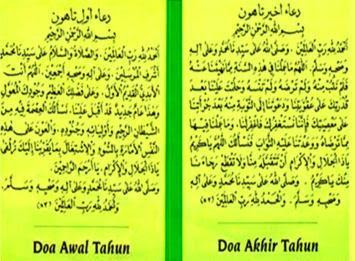 دعاء اخير تاهون
بسم الله الرحمن الرحيم
الحمد لله رب العالمين . وصلى الله على سيدنا محمد وعلى آله
وصحبه وسلم . اللهم ما عملنا في هذه السنة مما نهيتنا عنه
فلم نتب منه ولم ترضه ولم تنسه وحلمت علينا بعد
قدرتك على عقوبتنا ودعوتنا إلى التوبة منه بعد جرأتنا
على معصيتك فإنا نستغفرك فاغفر لنا . وما عملنا فيها
مما ترضاه ووعدتنا عليه الثواب فنسألك اللهم يا كريم
يا ذا الجلال والإكرام أن تتقبله منا ولا تقطع رجاءنا
منك يا كريم . وصلى الله على سيدنا محمد وعلى آله
وصحبه وسلم . والحمد لله رب العالمين
Doa Akhir Tahun
دعاء اول تاهون
بسم الله الرحمن الرحيم
الحمد لله رب العالمين . والصلاة والسلام على سيدنا محمد
أشرف المرسلين . وعلى آله وصحبه أجمعين . اللهم أنت
الأبدي القديم الأول . وعلى فضلك العظيم وجودك المعول
وهذا عام جديد قد أقبل علينا . نسألك العصمة فيه من
الشيطان الرجيم وأوليائه وجنوده . والعون على هذه
النفس الأمارة بالسوء والاشتغال بما يقربنا إليك زلفى
يا ذا الجلال والإكرام . يا أرحم الراحمين .
وصلى الله على سيدنا محمد وعلى آله وصحبه وسلم .
والحمد لله رب العالمين
Doa Awal Tahun